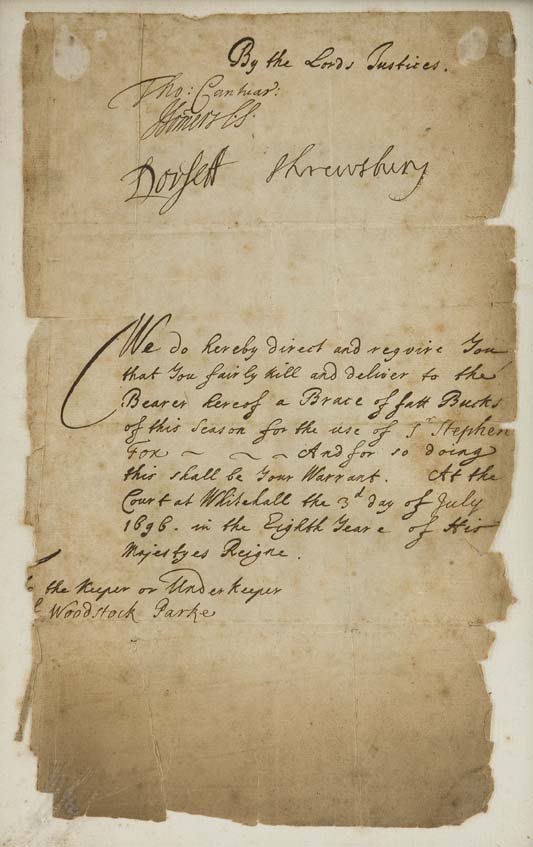 By the Lords Justices.
Tho: Cantuar:
JSomers C.S.
Dorsett Shrewsbury
We do hereby direct and require You
that You fairly kill and deliver to the
Bearer hereof a Brace of fatt Bucks
of this Season for the use of Sr Stephen
Fox ~ ~ ~ And for so doing
this shall be Your Warrant. At the
Court at Whitehall the 3d day of July
1696. in the Eighth Yeare of His
Majestyes Reigne.
the Keeper or UnderKeeper
Woodstock Parke